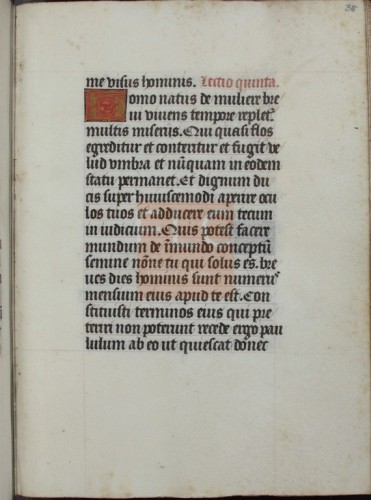 38
me visus hominis. Lectio quinta.
Homo natus de muliere bre
vi vivens tempore replet᷒
multis miseriis. Qui quasi flos
egreditur et conteritur et fugit ve
lud vmbra et nūquam in eodem
statu permanet. Et dignum du
cis super huiuscemodi aperire ocu
los tuos et adducere eum tecum
in iudicium. Quis potest facere
mundum de īmundo conceptū
semine nōne tu qui solus es. bre
ves dies hominis sunt numer᷒
mensium eius apud te est. Con
stituisti terminos eius qui pre
teriri non poterunt recede ergo pau
lulum ab eo ut quiescat donec